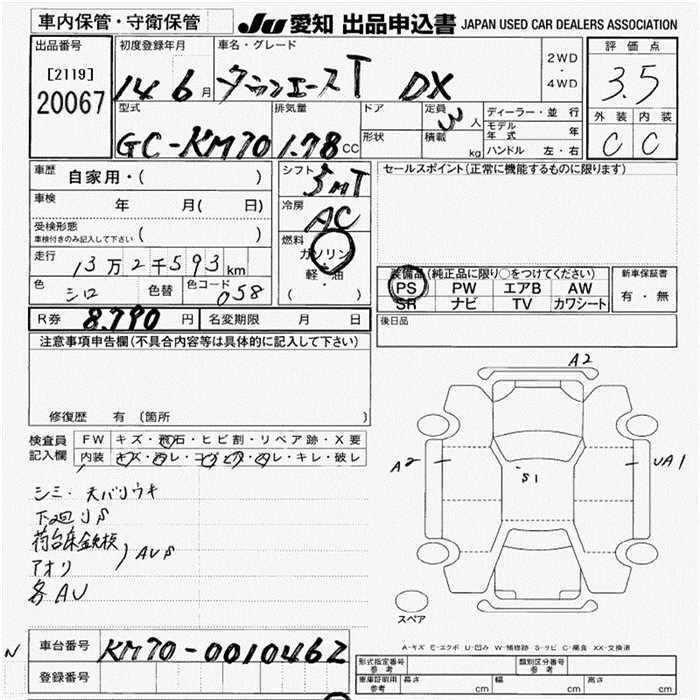 車内保管・守衛保管 JU 愛知 出品申込書 JAPAN USED CAR DEALERS ASSOCIATION
出品番号 初度登録年月 車名・グレード 2WD・4WD 評価点
[2119]
20067 14 6月 タウンエースT DX 3.5
型式 排気量 ドア 定員 3人 ディーラー・並行 外装 内装
GC-KM70 1.78cc 形状 積載 kg モデル年式 年 C C
ハンドル 左・右
車歴 自家用・( ) シフト 5MT セールスポイント(正常に機能するものに限ります)
車検 年 月( 日) 冷房 AC
受検形態 ( )
車検付きのみ記入して下さい
燃料 ガソリン・軽・油 ( )
走行 13万2千593km 装備品(純正品に限り○をつけてください) 新車保証書
色 シロ 色替 色コード 058 PS PW エアB AW 有・無
SR ナビ TV カワシート
R券 8,790円 名変期限 月 日 後日品
注意事項申告欄(不具合内容等は具体的に記入して下さい)
修復歴 有 (箇所
検査員記入欄 FW キズ・飛石・ヒビ割・リペア跡・X要
内装 キズ・汚レ・コゲ・穴・キレ・破レ
シミ・天バリウキ
下回りS
荷台床鉄板
アオリ ) AUS
各AU
A2
A2 S1 UA1
スペア
A-キズ E-エクボ U-凹み W-補修跡 S-サビ C-腐食 XX-交換済
N 車台番号 KM70-0010462
登録番号
形式指定番号 参考 類別区分番号 参考
車庫証明用 参考 長さ cm 幅 cm 高さ cm